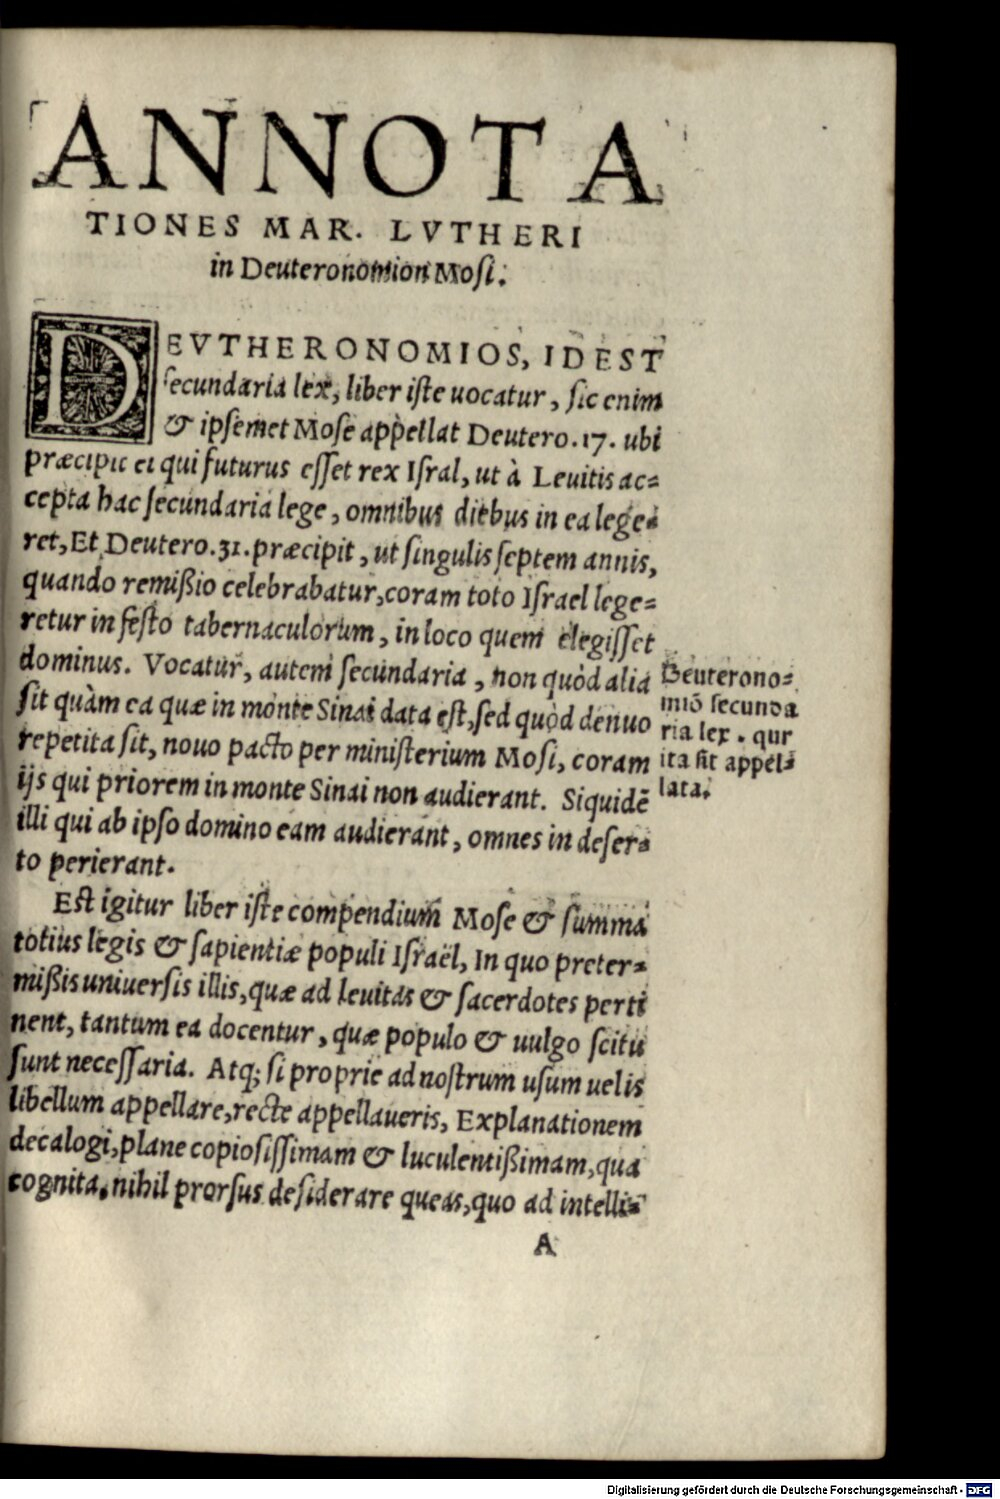 ANNOTA
TIONES MAR. LVTHERI
in Deuteronomion Mosi.
DEVTHERONOMIOS, ID EST
secundaria lex, liber iste uocatur, sic enim
& ipsemet Mose appellat Deutero. 17. ubi
præcipit ei qui futurus esset rex Isral, ut à Leuitis ac=
cepta hac secundaria lege, omnibus diebus in ea lege=
ret, Et Deutero. 31. præcipit, ut singulis septem annis,
quando remißio celebrabatur, coram toto Israel lege=
retur in festo tabernaculorum, in loco quem elegisset
dominus. Vocatur, autem secundaria, non quòd alia
sit quàm ea quæ in monte Sinai data est, sed quòd denuo
repetita sit, nouo pacto per ministerium Mosi, coram
ijs qui priorem in monte Sinai non audierant. Siquidē
illi qui ab ipso domino eam audierant, omnes in deser=
to perierant.
Deuterono=
miō secunda
ria lex. qur
ita sit appel=
lata.
Est igitur liber iste compendium Mose & summa
totius legis & sapientiæ populi Israël, In quo preter=
mißis uniuersis illis, quæ ad leuitas & sacerdotes perti
nent, tantum ea docentur, quæ populo & uulgo scitu
sunt necessaria. Atq; si proprie ad nostrum usum uelis
libellum appellare, recte appellaueris, Explanationem
decalogi, plane copiosissimam & luculentißimam, qua
cognita, nihil prorsus desiderare queas, quo ad intelli=
A
Digitalisierung gefördert durch die Deutsche Forschungsgemeinschaft - DFG